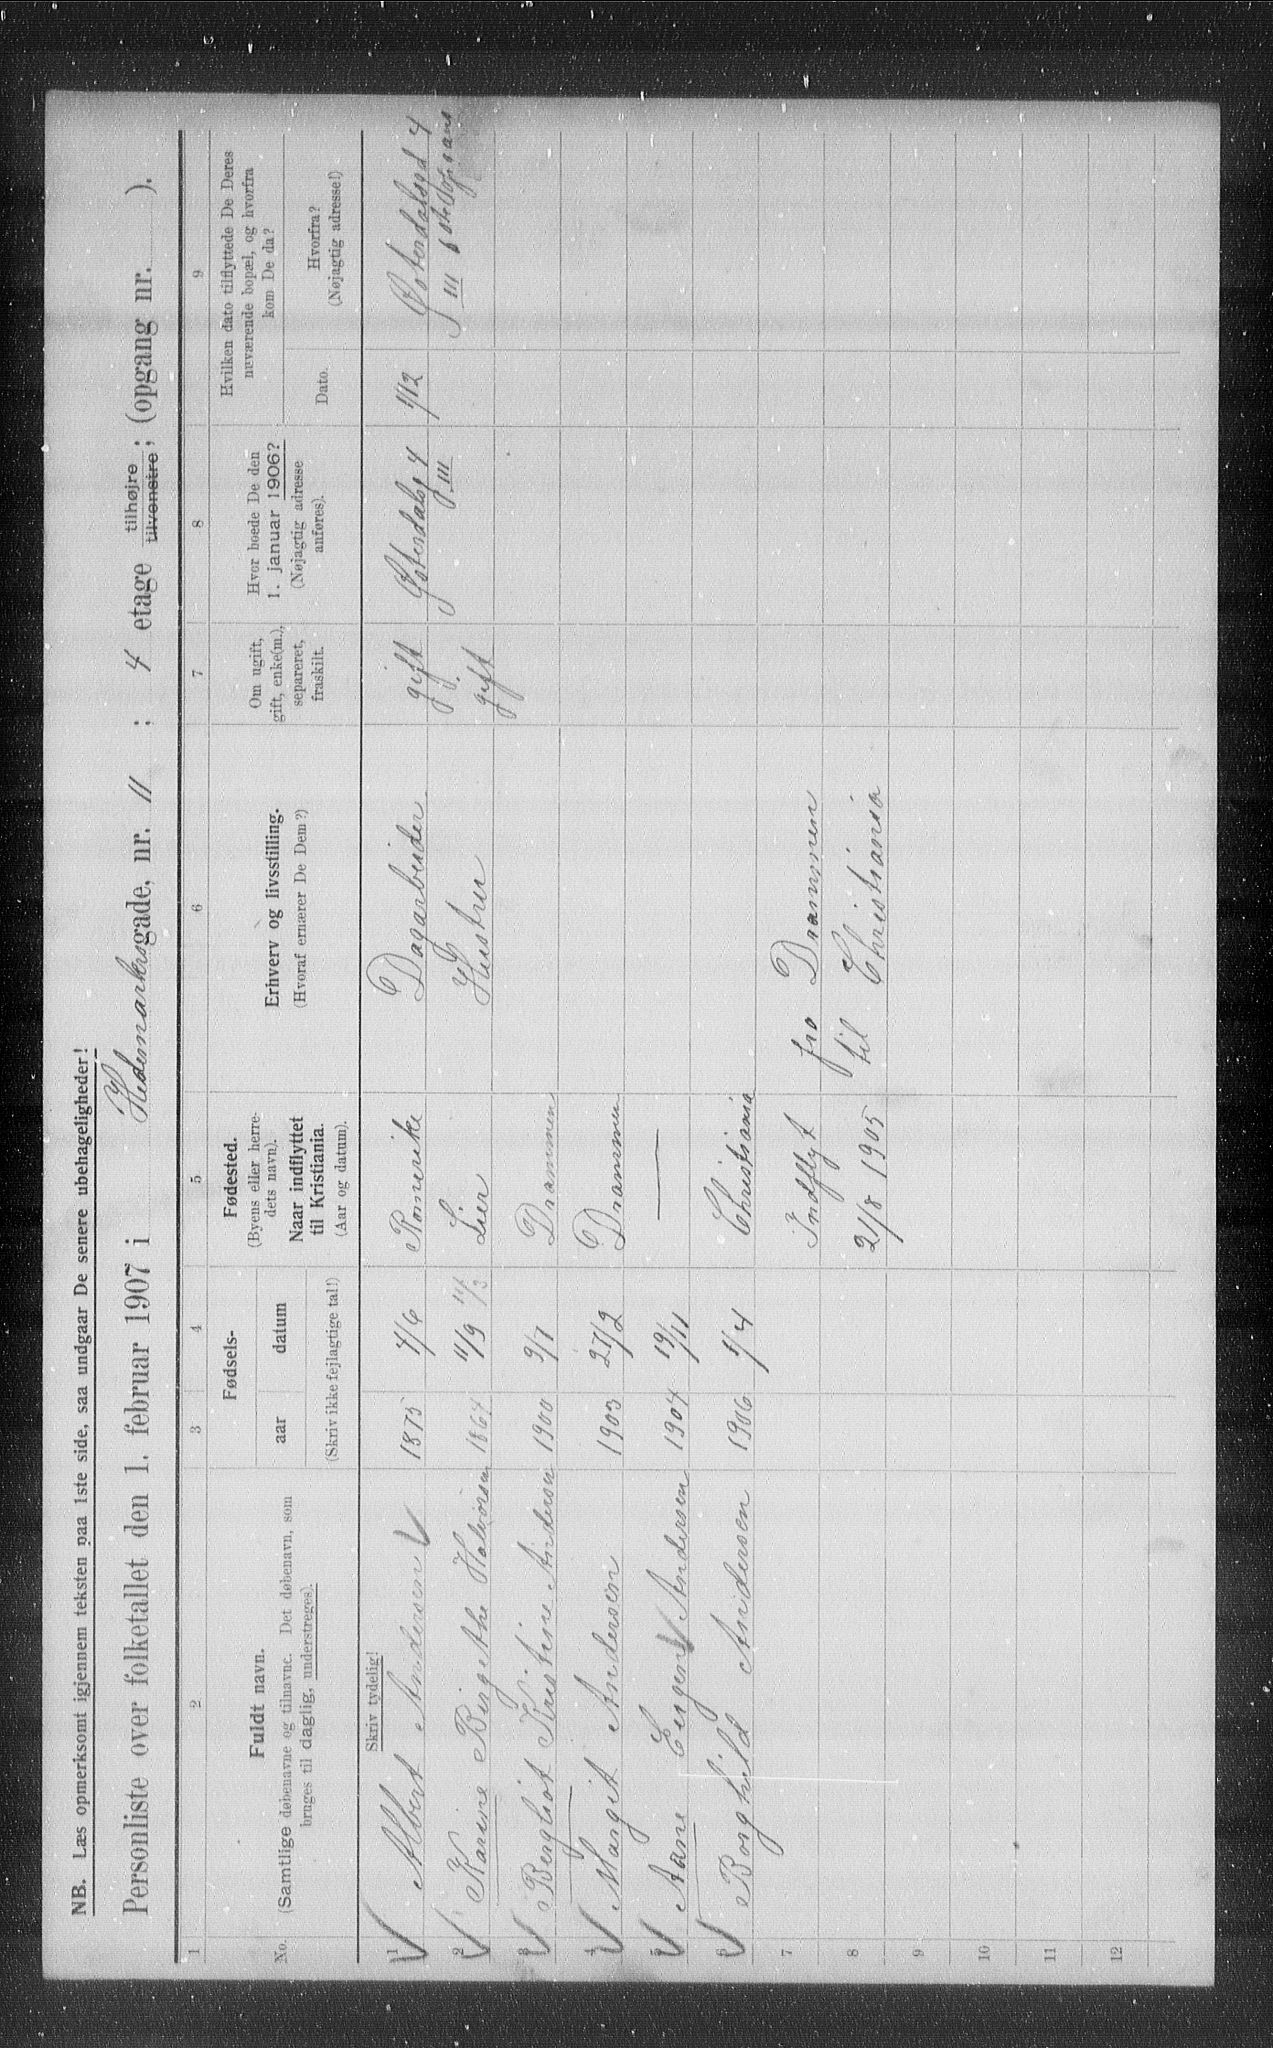 NB. Læs opmerksomt igjennem teksten paa 1ste side, saa undgaar De senere ubehageligheder!
Personliste over folketallet den 1. februar 1907 i Hedemarksgade, nr. 11 ; 4 etage tilhøjre ; tilvenstre ; (opgang nr. ).
1 2 3 4 5 6 7 8 9
No. Fuldt navn. (Samtlige døbenavne og tilnavne. Det døbenavn, som bruges til daglig, understreges).
Fødsels- aar datum (Skriv ikke fejlagtige tal!)
Fødested. (Byens eller herredets navn). Naar indflyttet til Kristiania. (Aar og datum).
Erhverv og livsstilling. (Hvoraf ernærer De Dem?)
Om ugift, gift, enke(m.), separeret, fraskilt.
Hvor boede De den 1. januar 1906? (Nøjagtig adresse anføres).
Hvilken dato tilflyttede De Deres nuværende bopæl, og hvorfra kom De da?
Dato. Hvorfra? (Nøjagtig adresse!)
Skriv tydelig!
1 Albert Andersen 1875 4/6 Romerike Dagarbeider gift Østerdalsg 4 III 1/12 Østerdalsgd 4 III
2 Karine Birgethe Halvorsen 1864 11/9 11/3 Lier Hustru gift
3 Bergliot Kristine Andersen 1900 9/7 Drammen
4 Margit Andersen 1903 27/2 Drammen
5 Aane Eugen Andersen 1904 19/11 —
6 Borghild Andersen 1906 1/4 Christiania
7 Indflyt fra Drammen
8 21/8 1905 til Christiania
9
10
11
12